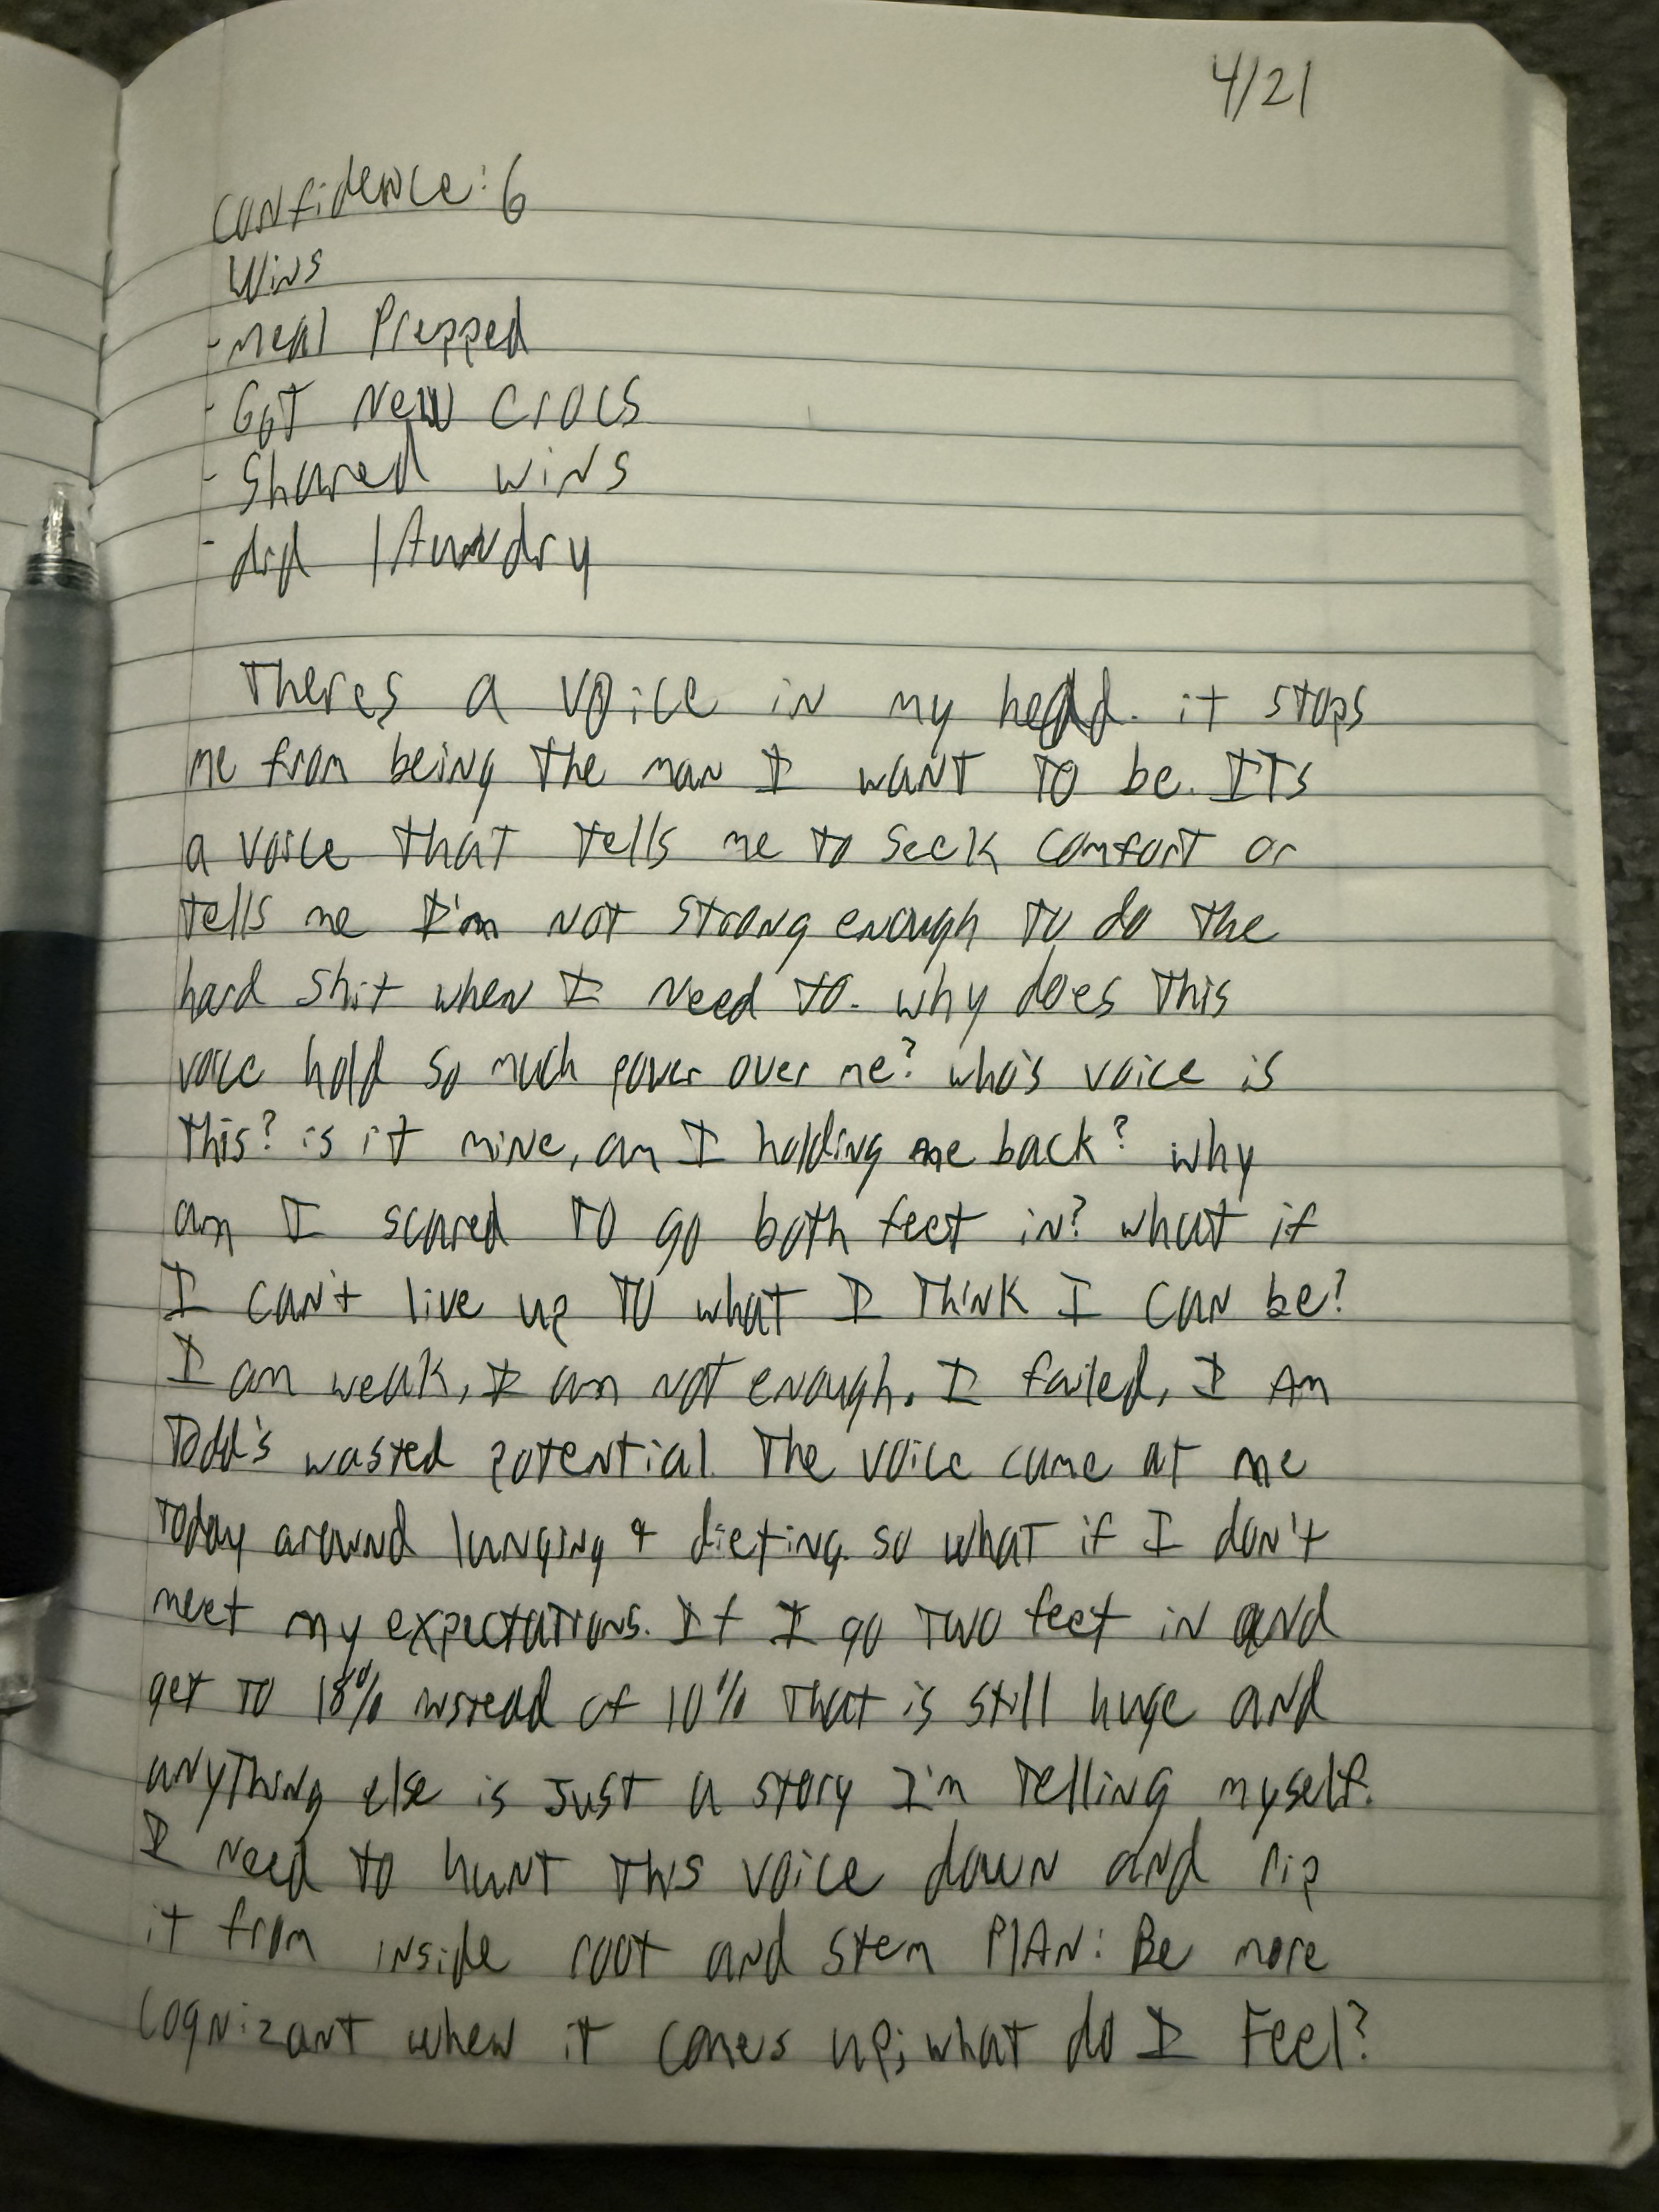 4/21
Confidence: 6
Wins
- Meal Prepped
- Got New Crocs
- Shared wins
- did lAundry
Theres a voice in my head. it stops
me from being the man I want to be. ITs
a voice that tells me to seek comfort or
tells me I'm not strong enough to do the
hard shit when I need to. why does this
voice hold so much power over me? who's voice is
this? is it mine, am I holding me back? why
am I scared to go both feet in? what if
I can't live up to what I think I can be?
I am weak, I am not enough. I failed, I Am
Todd's wasted potential. The voice came at me
today around lunging + dieting. so what if I don't
meet my expectations. If I go two feet in and
get to 18% instead of 10% that is still huge and
anything else is just a story I'm telling myself.
I need to hunt this voice down and rip
it from inside root and stem PlAN: Be more
cognizant when it comes up; what do I Feel?